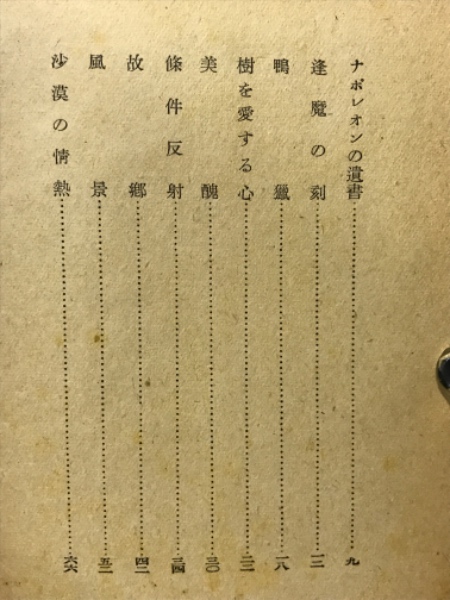 ナポレオンの遺書……九
逢魔の刻……一三
鴨獵……一八
樹を愛する心……二三
美醜……三〇
條件反射……三四
故鄕……四二
風景……五二
沙漠の情熱……六六